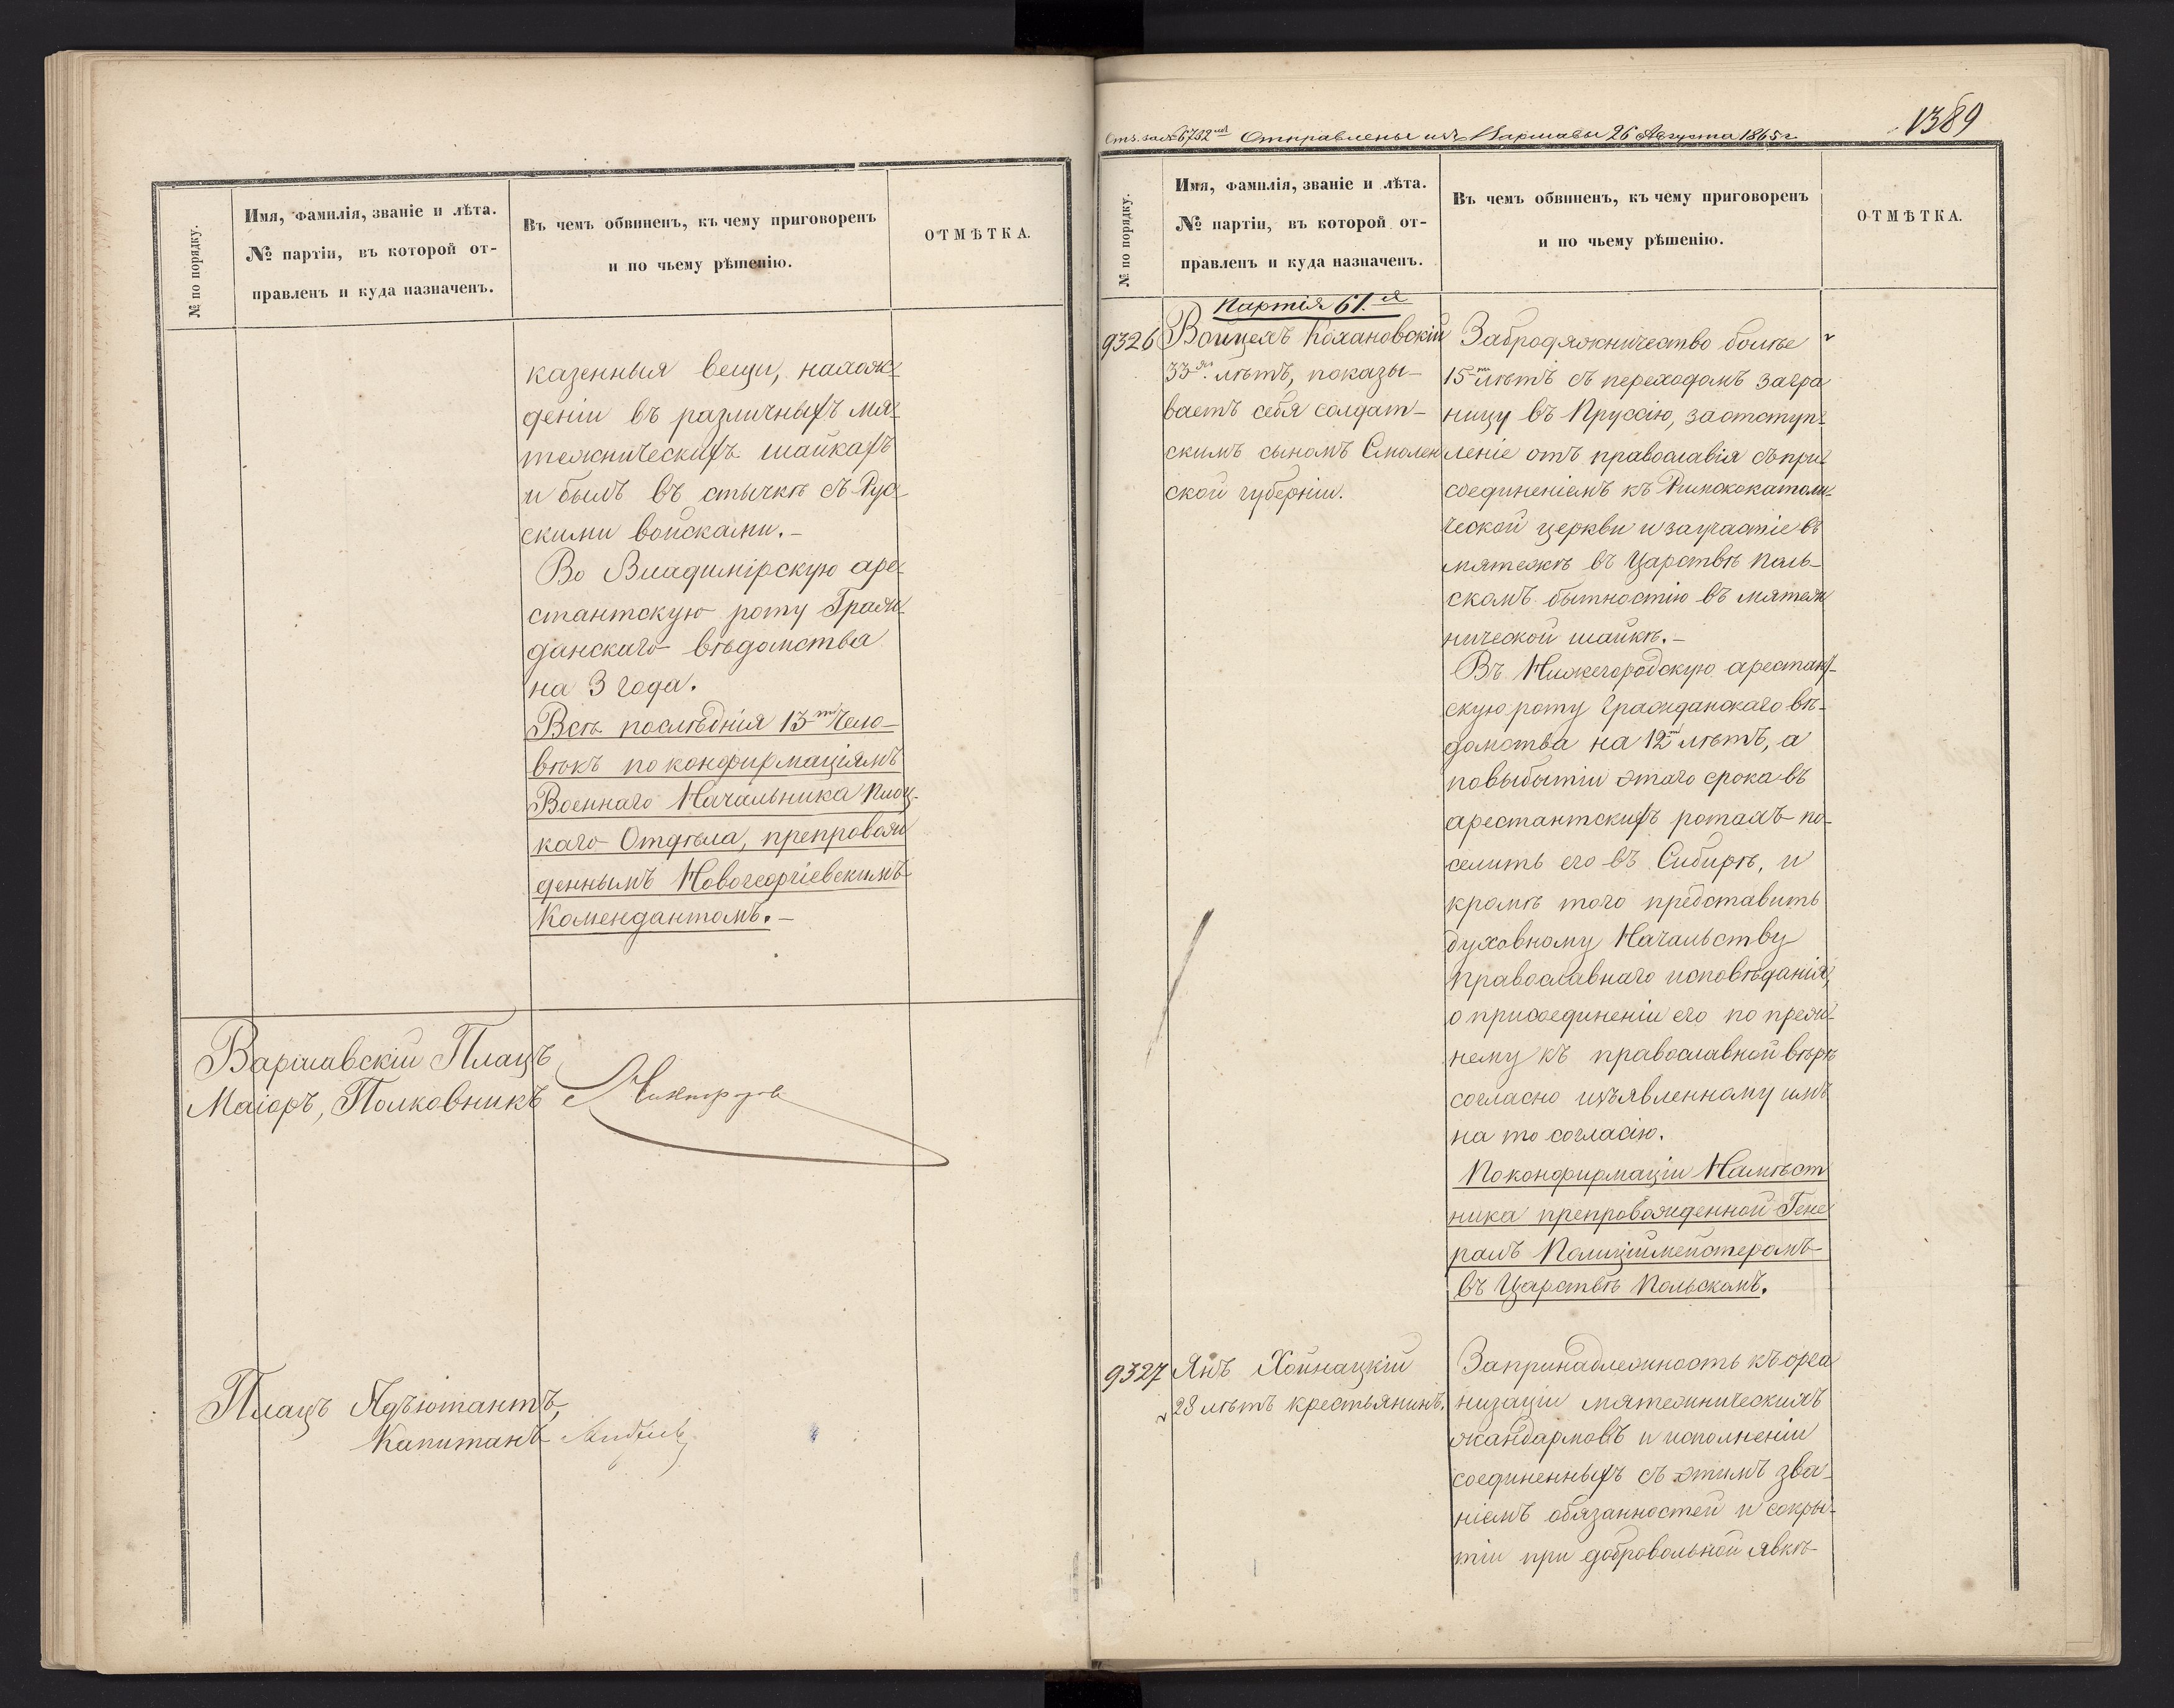 № по порядку.
Имя, фамилія, званіе и лѣта.
№ партіи, въ которой от-
правленъ и куда назначенъ.
Въ чемъ обвиненъ, къ чему приговоренъ
и по чьему рѣшенію.
ОТМѢТКА.
казенныя вещи, нахож-
деніи въ различныхъ мя-
тежническихъ шайкахъ
и былъ въ стычкѣ съ Рус-
скими войсками.-
Во Владимірскую аре-
стантскую роту Граж-
данскаго вѣдомства
на 3 года.
Всѣ послѣднія 13ть чело-
вѣкъ по конфирмаціямъ
Военнаго Начальника Плоц-
каго Отдѣла, препровож-
деннымъ Новогеоргіевскимъ
Комендантомъ.-
Варшавскій Плацъ
Маіоръ, Полковникъ
Плацъ Адъютантъ,
Капитанъ
1389
Отз. за № 6732 Отправлены изъ Варшавы 26 Августа 1865 г.
№ по порядку.
Имя, фамилія, званіе и лѣта.
№ партіи, въ которой от-
правленъ и куда назначенъ.
Въ чемъ обвиненъ, къ чему приговоренъ
и по чьему рѣшенію.
ОТМѢТКА.
Партія 61.ая
9326 Войцехъ Кохановскій
33хъ лѣтъ, показы-
ваетъ себя солдат-
скимъ сыномъ Смолен
ской губерніи.
За бродяжничество болѣе
15ть лѣтъ съ переходомъ загра
ницу въ Пруссію, за отступ-
леніе отъ православія съ при-
соединеніемъ къ Римскокатоли-
ческой церкви и за участіе въ
мятежѣ въ Царствѣ Поль-
скомъ бытностію въ мятеж
нической шайкѣ.-
Въ Нижегородскую арестант-
скую роту Гражданскаго вѣ-
домства на 12ть лѣтъ, а
по выбытіи этого срока въ
арестантскихъ ротахъ по-
селить его въ Сибирѣ, и
кромѣ того предоставить
духовному Начальству
православнаго исповѣданія,
о присоединеніи его по преж-
нему къ православной вѣрѣ
согласно изъявленному имъ
на то согласію.
По конфирмаціи Намѣст
ника препровожденной Гене
ралъ Полиціймейстеромъ
въ Царствѣ Польскомъ.
9327 Янъ Хойнацкій
28 лѣтъ крестьянинъ.
За принадлежность къ орга
низаціи мятежническихъ
жандармовъ и исполненіи
соединенныхъ съ этимъ зва-
ніемъ обязанностей и сокры-
тіи при добровольной явкѣ